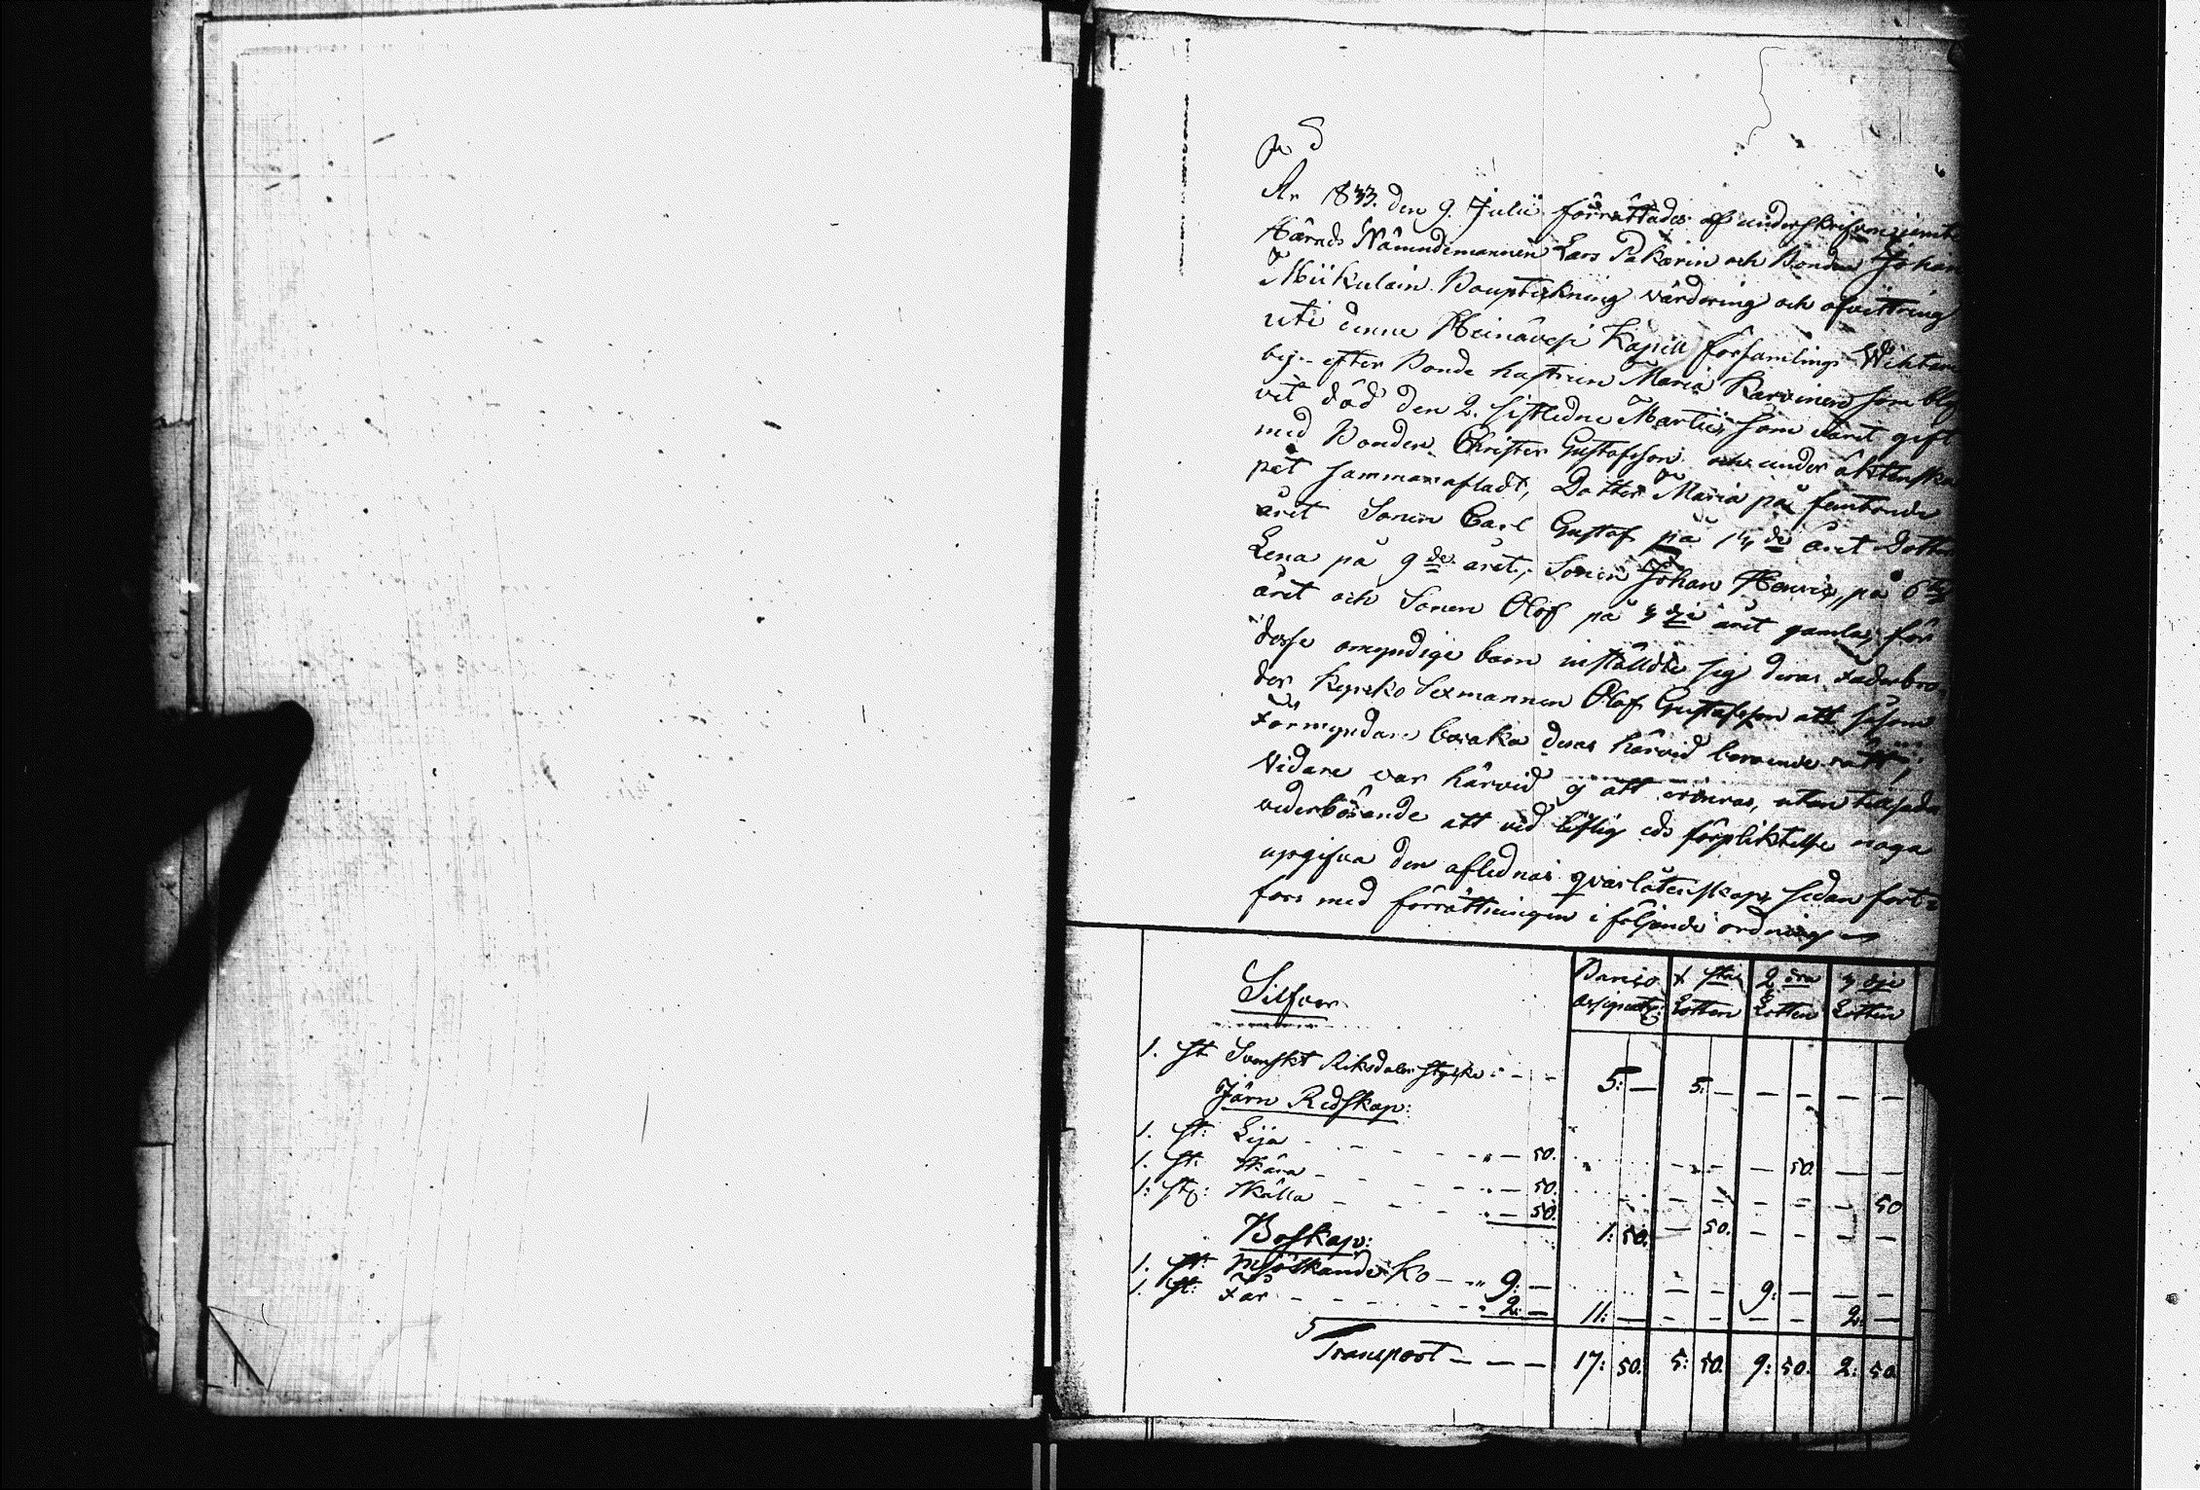 År 1833. den 9. Julii förrättades af underskrifven jemte
Härads Nämndemannen Lars Pakarin och Bonden Johan
Miikulain Bouptekning värdering och afvittring
uti denne Heinävesi Kapell församlings Wihtari
by efter Bonde hustrun Maria Karvinen som blef
vit död den 2. sistledne Martii, som varit gift
med Bonden Christer Gustafsson och under äktenska
pet sammanafladt, Dotter Maria på femtonde
året Sonen Carl Gustaf på 14 de året Dotter
Lena på 9 de året, Sonen Johan Henric, på 6 te
året och Sonen Olof på 3 dje året gamla, för
desse omyndige barn inställde sig deras Faderbro
der Kyrcko Sexmannen Olof Gustafsson att såsom
Förmyndare bevaka deras härvid beroende rätt;
Vidare var härvid ej att erinras, utan tillsades
vederbörande att vid liflig eds förpliktelse noga
upgifva den aflednas qvarlåtenskap, sedan fort
fors med förrättningen i följande ordning
Silfver Banco 1 sta 2 dra 3 dje
Assignats: Lotten Lotten Lotten
1. st Svenskt Riksdaler stycke - - 5: — 5: — — — — —
Järn Redskap:
1. st: Lija - - - - " — 50. — — — 50. — —
1. st. Skära - - - - " — 50. — — — — — 50
1: st: Skälla - - - - " — 50. 1: 50. — 50. — — — —
Boskap:
1. st: Mjölkande Ko — " 9: — — — 9: — — —
1. st: Får - - - - " 2: — 11: — — — — — 2: —
Transport — — — 17: 50. 5: 50. 9: 50. 2: 50